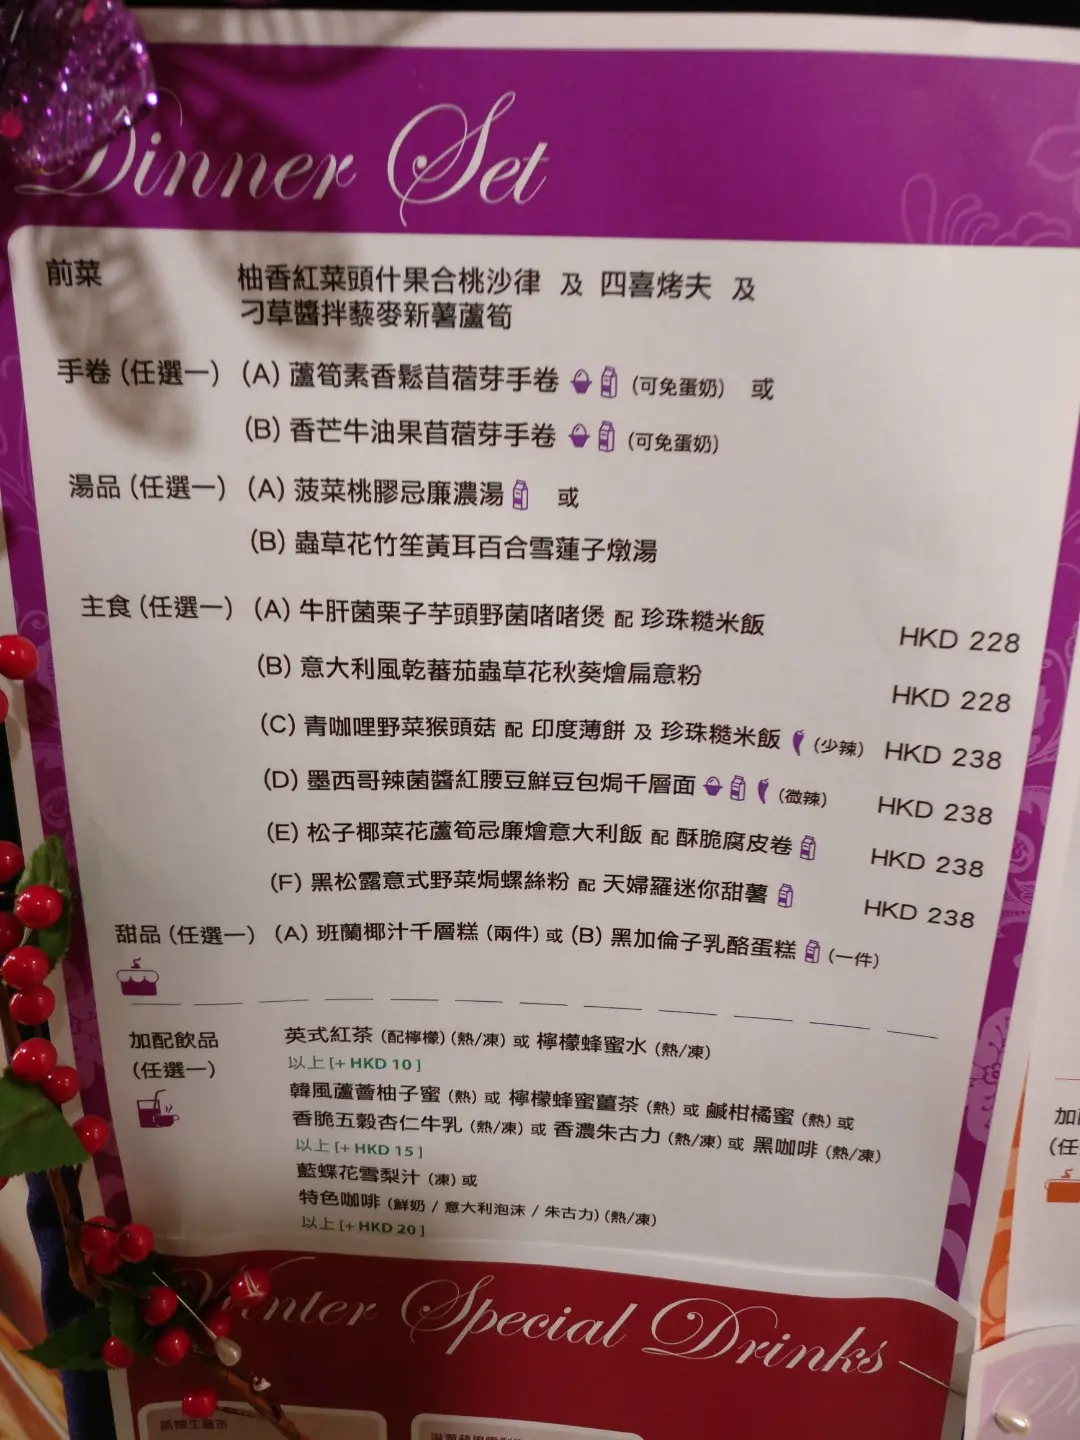 Dinner Set
前菜 柚香紅菜頭什果合桃沙律 及 四喜烤夫 及
刁草醬拌藜麥新薯蘆筍
手卷 (任選一) (A) 蘆筍素香鬆苜蓿芽手卷 (可免蛋奶) 或
(B) 香芒牛油果苜蓿芽手卷 (可免蛋奶)
湯品 (任選一) (A) 菠菜桃膠忌廉濃湯 或
(B) 蟲草花竹笙黃耳百合雪蓮子燉湯
主食 (任選一) (A) 牛肝菌栗子芋頭野菌啫啫煲 配 珍珠糙米飯 HKD 228
(B) 意大利風乾蕃茄蟲草花秋葵燴扁意粉 HKD 228
(C) 青咖哩野菜猴頭菇 配 印度薄餅 及 珍珠糙米飯 (少辣) HKD 238
(D) 墨西哥辣菌醬紅腰豆鮮豆包焗千層面 (微辣) HKD 238
(E) 松子椰菜花蘆筍忌廉燴意大利飯 配 酥脆腐皮卷 HKD 238
(F) 黑松露意式野菜焗螺絲粉 配 天婦羅迷你甜薯 HKD 238
甜品 (任選一) (A) 班蘭椰汁千層糕 (兩件) 或 (B) 黑加倫子乳酪蛋糕 (一件)
加配飲品
(任選一)
英式紅茶 (配檸檬) (熱/凍) 或 檸檬蜂蜜水 (熱/凍)
以上 [+ HKD 10 ]
韓風蘆薈柚子蜜 (熱) 或 檸檬蜂蜜薑茶 (熱) 或 鹹柑橘蜜 (熱) 或
香脆五穀杏仁牛乳 (熱/凍) 或 香濃朱古力 (熱/凍) 或 黑咖啡 (熱/凍)
以上 [+ HKD 15 ]
藍蝶花雪梨汁 (凍) 或
特色咖啡 (鮮奶 / 意大利泡沫 / 朱古力) (熱/凍)
以上 [+ HKD 20 ]
Winter Special Drinks
加配
(任